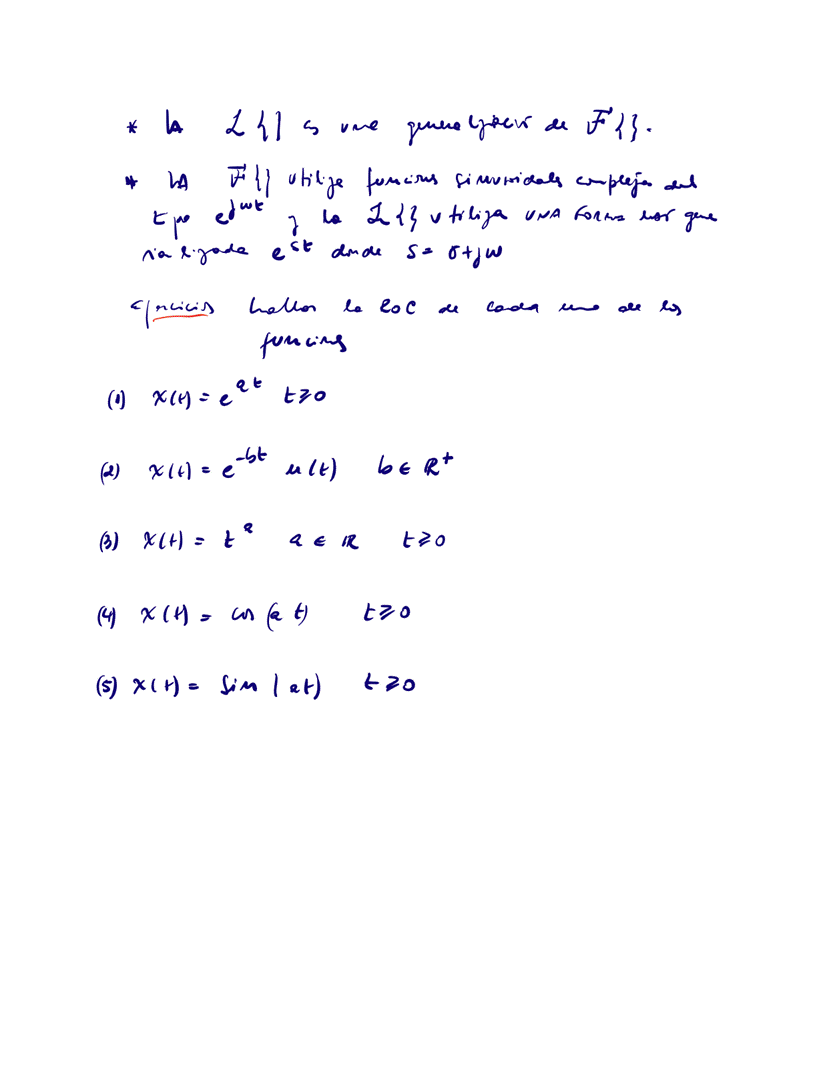 * LA ℒ{} es una generalización de ℱ{}.
* LA ℱ{} utiliza funciones sinusoidales complejas del
tipo e^{jωt} y la ℒ{} utiliza UNA FORMA más gene
ralizada e^{st} donde s = σ+jω
Ejercicios hallar la ROC de cada una de las
funciones
(1) x(t) = e^{at} t≥0
(2) x(t) = e^{-bt} u(t) b ∈ ℝ^+
(3) x(t) = t^a a ∈ ℝ t≥0
(4) x(t) = cos(at) t≥0
(5) x(t) = sin(at) t≥0